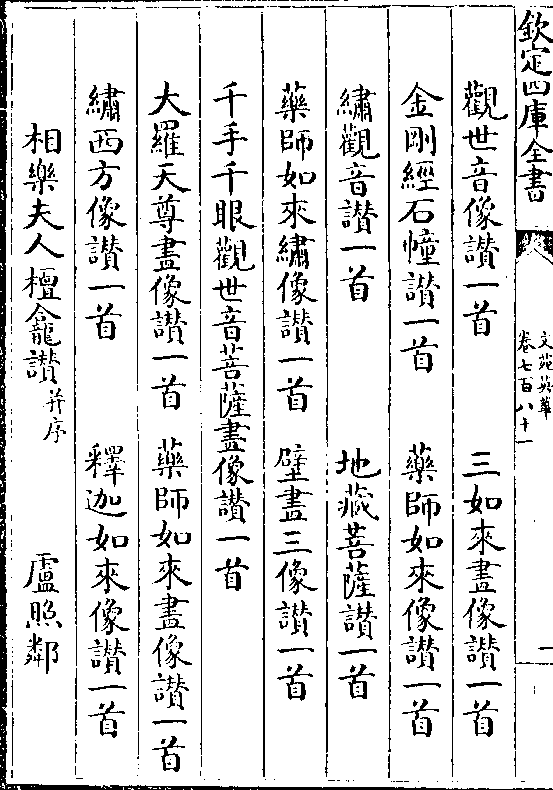 欽定四庫全書
文苑英華
卷七百八十一
一
觀世音像讃一首 三如來畫像讃一首
金剛經石幢讃一首 藥師如來像讃一首
繡觀音讃一首 地藏菩薩讃一首
藥師如來繡像讃一首 壁畫三像讃一首
千手千眼觀世音菩薩畫像讃一首
大羅天尊畫像讃一首 藥師如來畫像讃一首
繡西方像讃一首 釋迦如來像讃一首
相樂夫人檀龕讃并序 盧照鄰